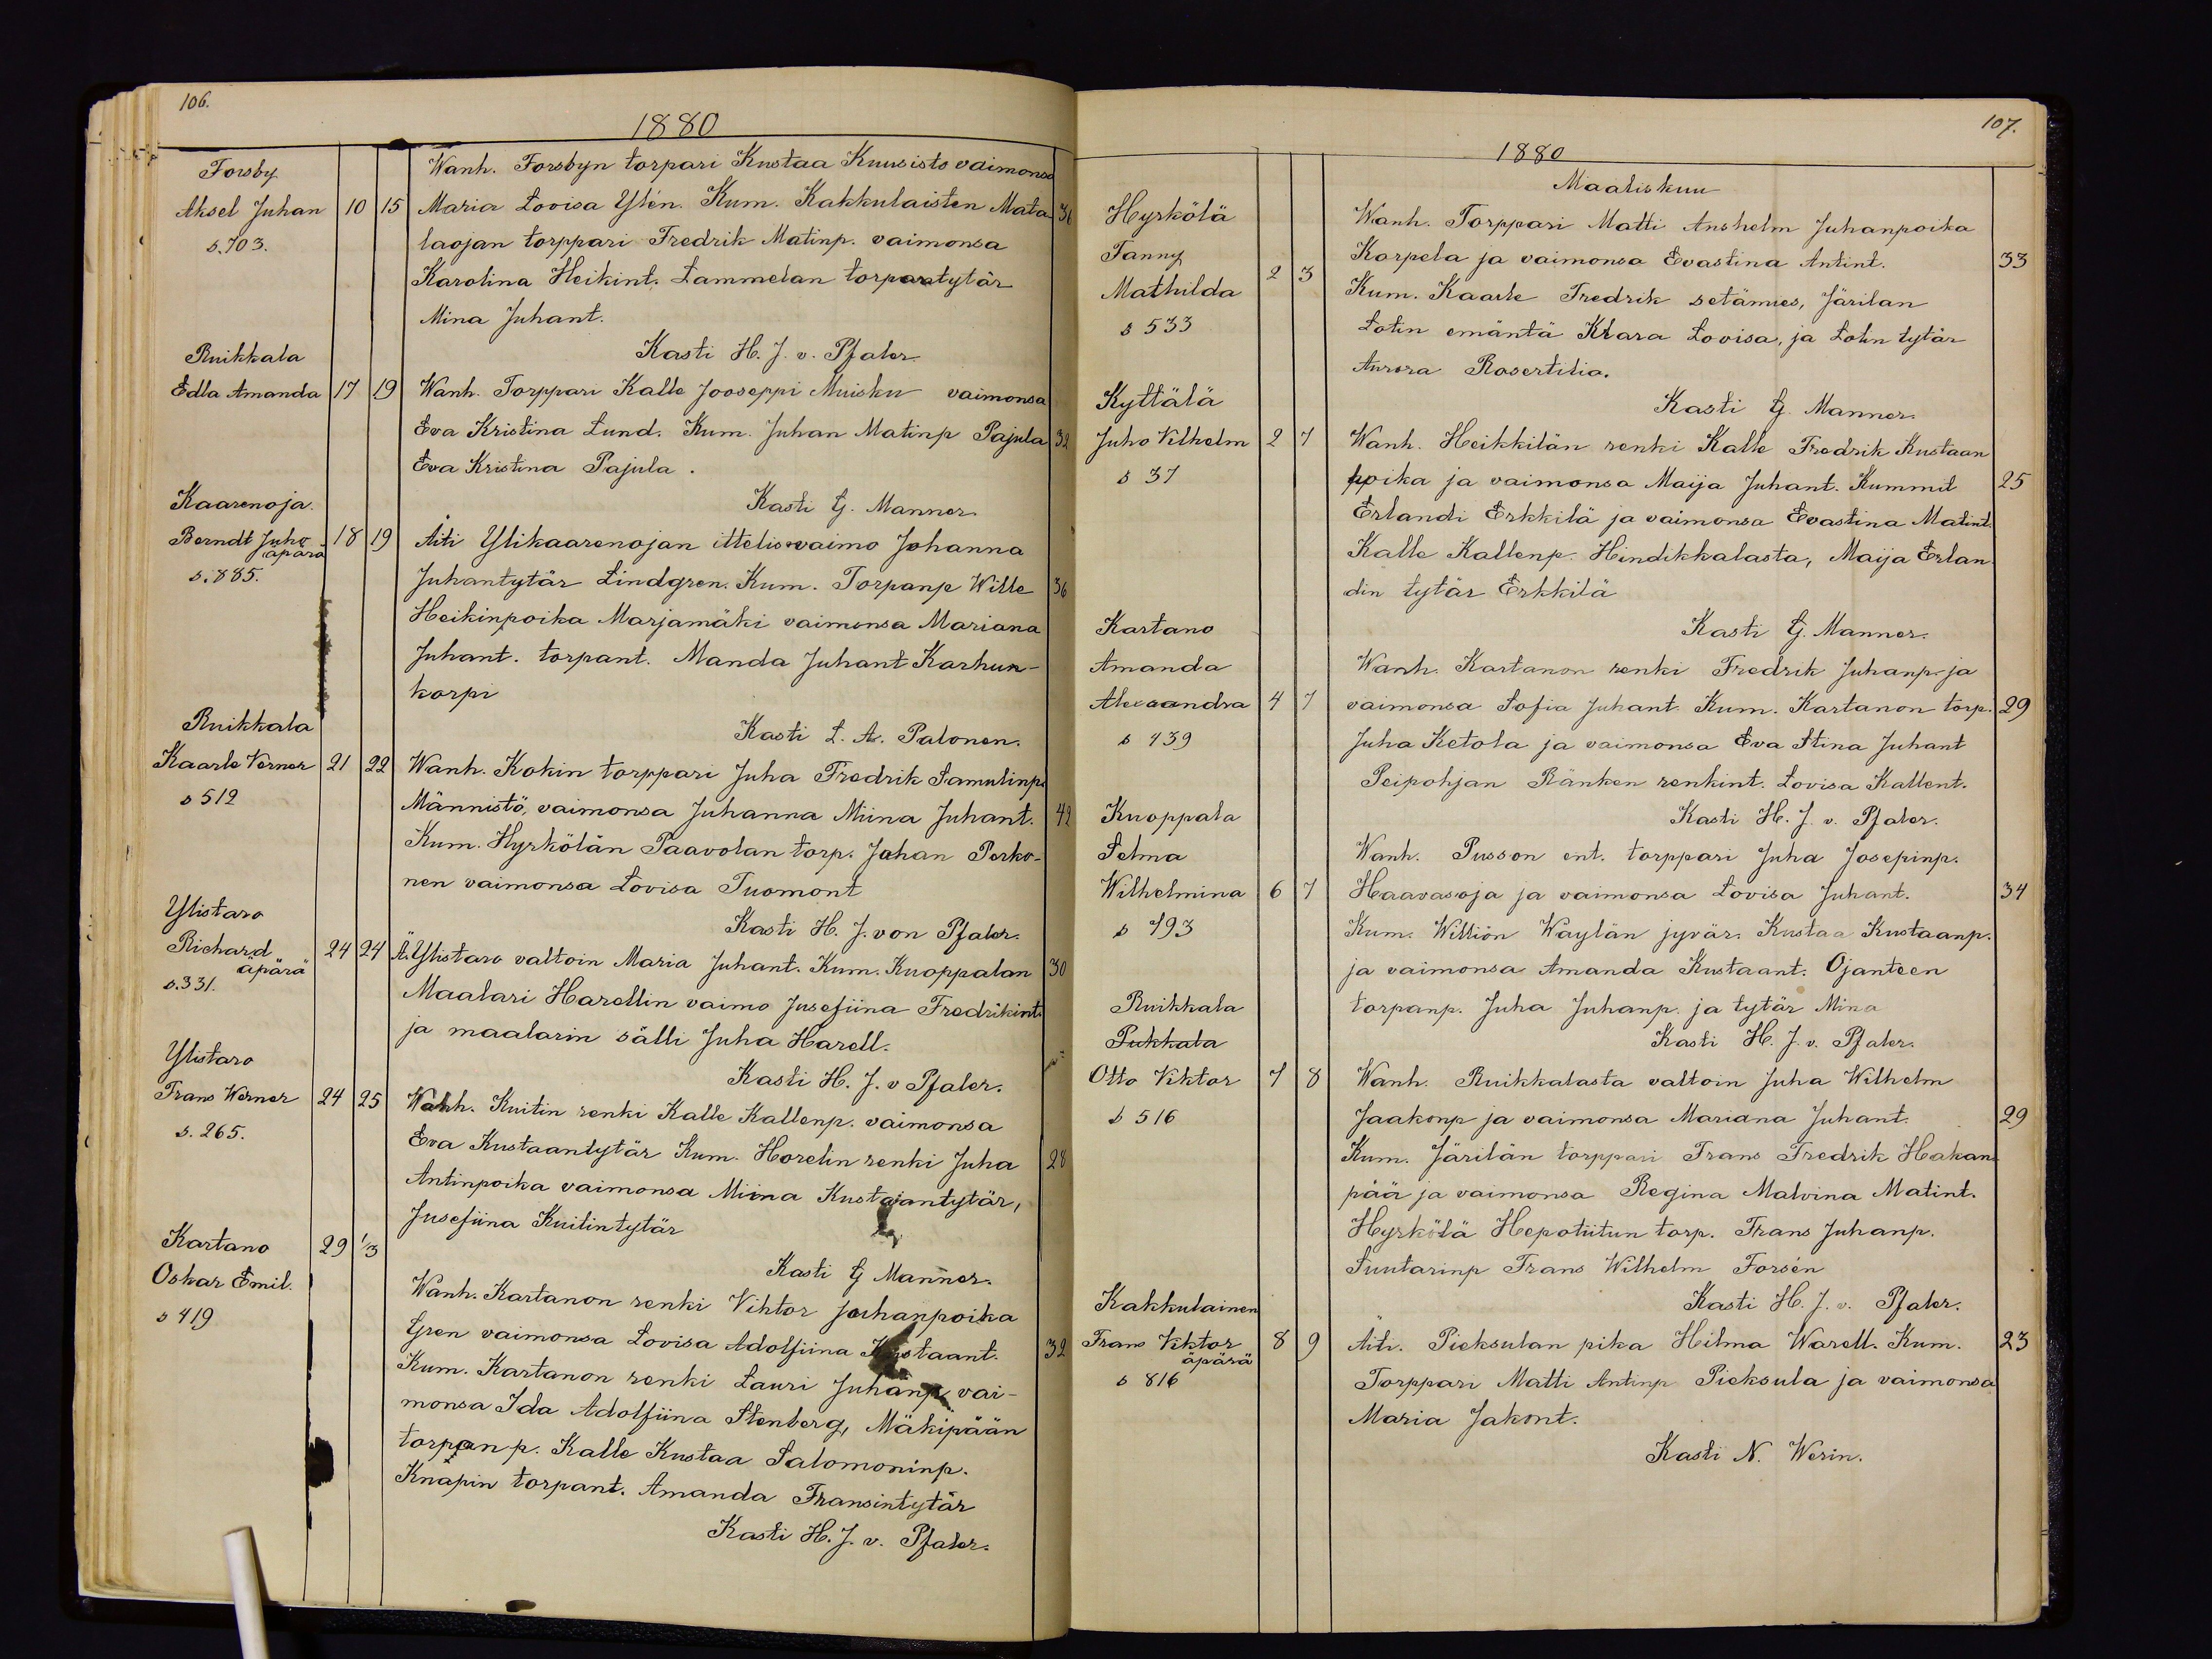 106.
1880
Forsby
Wanh. Forsbyn torpari Kustaa Kuusisto vaimonsa
Aksel Juhan 10 15 Maria Lovisa Ylén. Kum. Kakkulaisten Mata- 36
s. 703. laojan torppari Fredrik Matinp. vaimonsa
Karolina Heikint. Lammelan torparatytär
Mina Juhant.
Kasti H. J. v. Pfaler
Ruikkala
Edla Amanda 17 19 Wanh. Torppari Kalle Jooseppi Muisku vaimonsa
Eva Kristina Lund. Kum. Juhan Matinp Pajula 32
Eva Kristina Pajula.
Kasti G. Manner
Kaarenoja.
Berndt Juho 18 19 Äiti Ylikaarenojan ittelisvaimo Johanna
äpärä
s. 885. Juhantytär Lindgren. Kum. Torpanp Wille 36
Heikinpoika Marjamäki vaimonsa Mariana
Juhant. torpant. Manda Juhant Karhun-
korpi
Kasti L. A. Palonen.
Ruikkala
Kaarle Verner 21 22 Wanh. Kokin torppari Juha Fredrik Samulinp.
s 512 Männistö, vaimonsa Juhanna Miina Juhant. 42
Kum. Hyrkölän Paavolan torp. Juhan Perko-
nen vaimonsa Lovisa Tuomont
Kasti H. J. von Pfaler.
Ylistaro
Richard 24 24 Ä. Ylistaro valtoin Maria Juhant. Kum. Kuoppalan 30
äpärä
s. 331. Maalari Harellin vaimo Jusefiina Fredrikint.
ja maalarin sälli Juha Harell.
Kasti H. J. v Pfaler.
Ylistaro
Frans Werner 24 25 Wanh. Kuitin renki Kalle Kallenp. vaimonsa
s. 265. Eva Kustaantytär Kum. Horelin renki Juha 28
Antinpoika vaimonsa Miina Kustaantytär,
Jusefiina Kuitintytär
Kasti G Manner.
Kartano 29 1/3
Oskar Emil. Wanh. Kartanon renki Vihtor Juhanpoika
s 419 Gren vaimonsa Lovisa Adolfiina Kustaant. 32
Kum. Kartanon renki Lauri Juhanp, vai-
monsa Ida Adolfiina Stenberg, Mäkipään
torpan p. Kalle Kustaa Salomoninp.
Knapin torpant. Amanda Fransintytär
Kasti H. J. v. Pfaler.
107.
1880
Maaliskuu
Hyrkölä Wanh. Torppari Matti Anshelm Juhanpoika
Fanny 2 3 Korpela ja vaimonsa Evastina Antint. 33
Mathilda Kum. Kaarle Fredrik setämies, Järilan
s 533 Lotin emäntä Klara Lovisa, ja Lotin tytär
Aurora Rosertilia.
Kasti G. Manner.
Kyttälä
Juho Vilhelm 2 7 Wanh. Heikkilän renki Kalle Fredrik Kustaan
s 37 poika ja vaimonsa Maija Juhant. Kummit 25
Erlandi Erkkilä ja vaimonsa Evastina Matint.
Kalle Kallenp. Hindikkalasta, Maija Erlan
din tytär Erkkilä
Kasti G. Manner.
Kartano
Amanda Wanh. Kartanon renki Fredrik Juhanp. ja
Alexsandra 4 7 vaimonsa Sofia Juhant. Kum. Kartanon torp. 29
s 439 Juha Ketola ja vaimonsa Eva Stina Juhant
Peipohjan Ränken renkint. Lovisa Kallent.
Kasti H. J. v. Pfaler.
Kuoppala
Selma Wanh. Pusson ent. torppari Juha Josepinp.
Wilhelmina 6 7 Haavasoja ja vaimonsa Lovisa Juhant. 34
s 493 Kum. Willión Waylän jyvär. Kustaa Kustaanp.
ja vaimonsa Amanda Kustaant. Ojanteen
torpanp. Juha Juhanp. ja tytär Mina
Kasti H. J. v. Pfaler.
Ruikkala
Pukkala
Otto Viktor 7 8 Wanh. Ruikkalasta valtoin Juha Wilhelm
s 516 Jaakonp ja vaimonsa Mariana Juhant. 29
Kum. Järilän torppari Frans Fredrik Hakan-
pää ja vaimonsa Regina Malvina Matint.
Hyrkölä Hepotiitun torp. Frans Juhanp.
Suutarinp Frans Wilhelm Forsén
Kasti H. J. v. Pfaler.
Kakkulainen
Frans Viktor 8 9 Äiti. Pieksulan pika Hilma Warell. Kum. 23
äpärä
s 816 Torppari Matti Antinp Pieksula ja vaimonsa
Maria Jakont.
Kasti N. Werin.